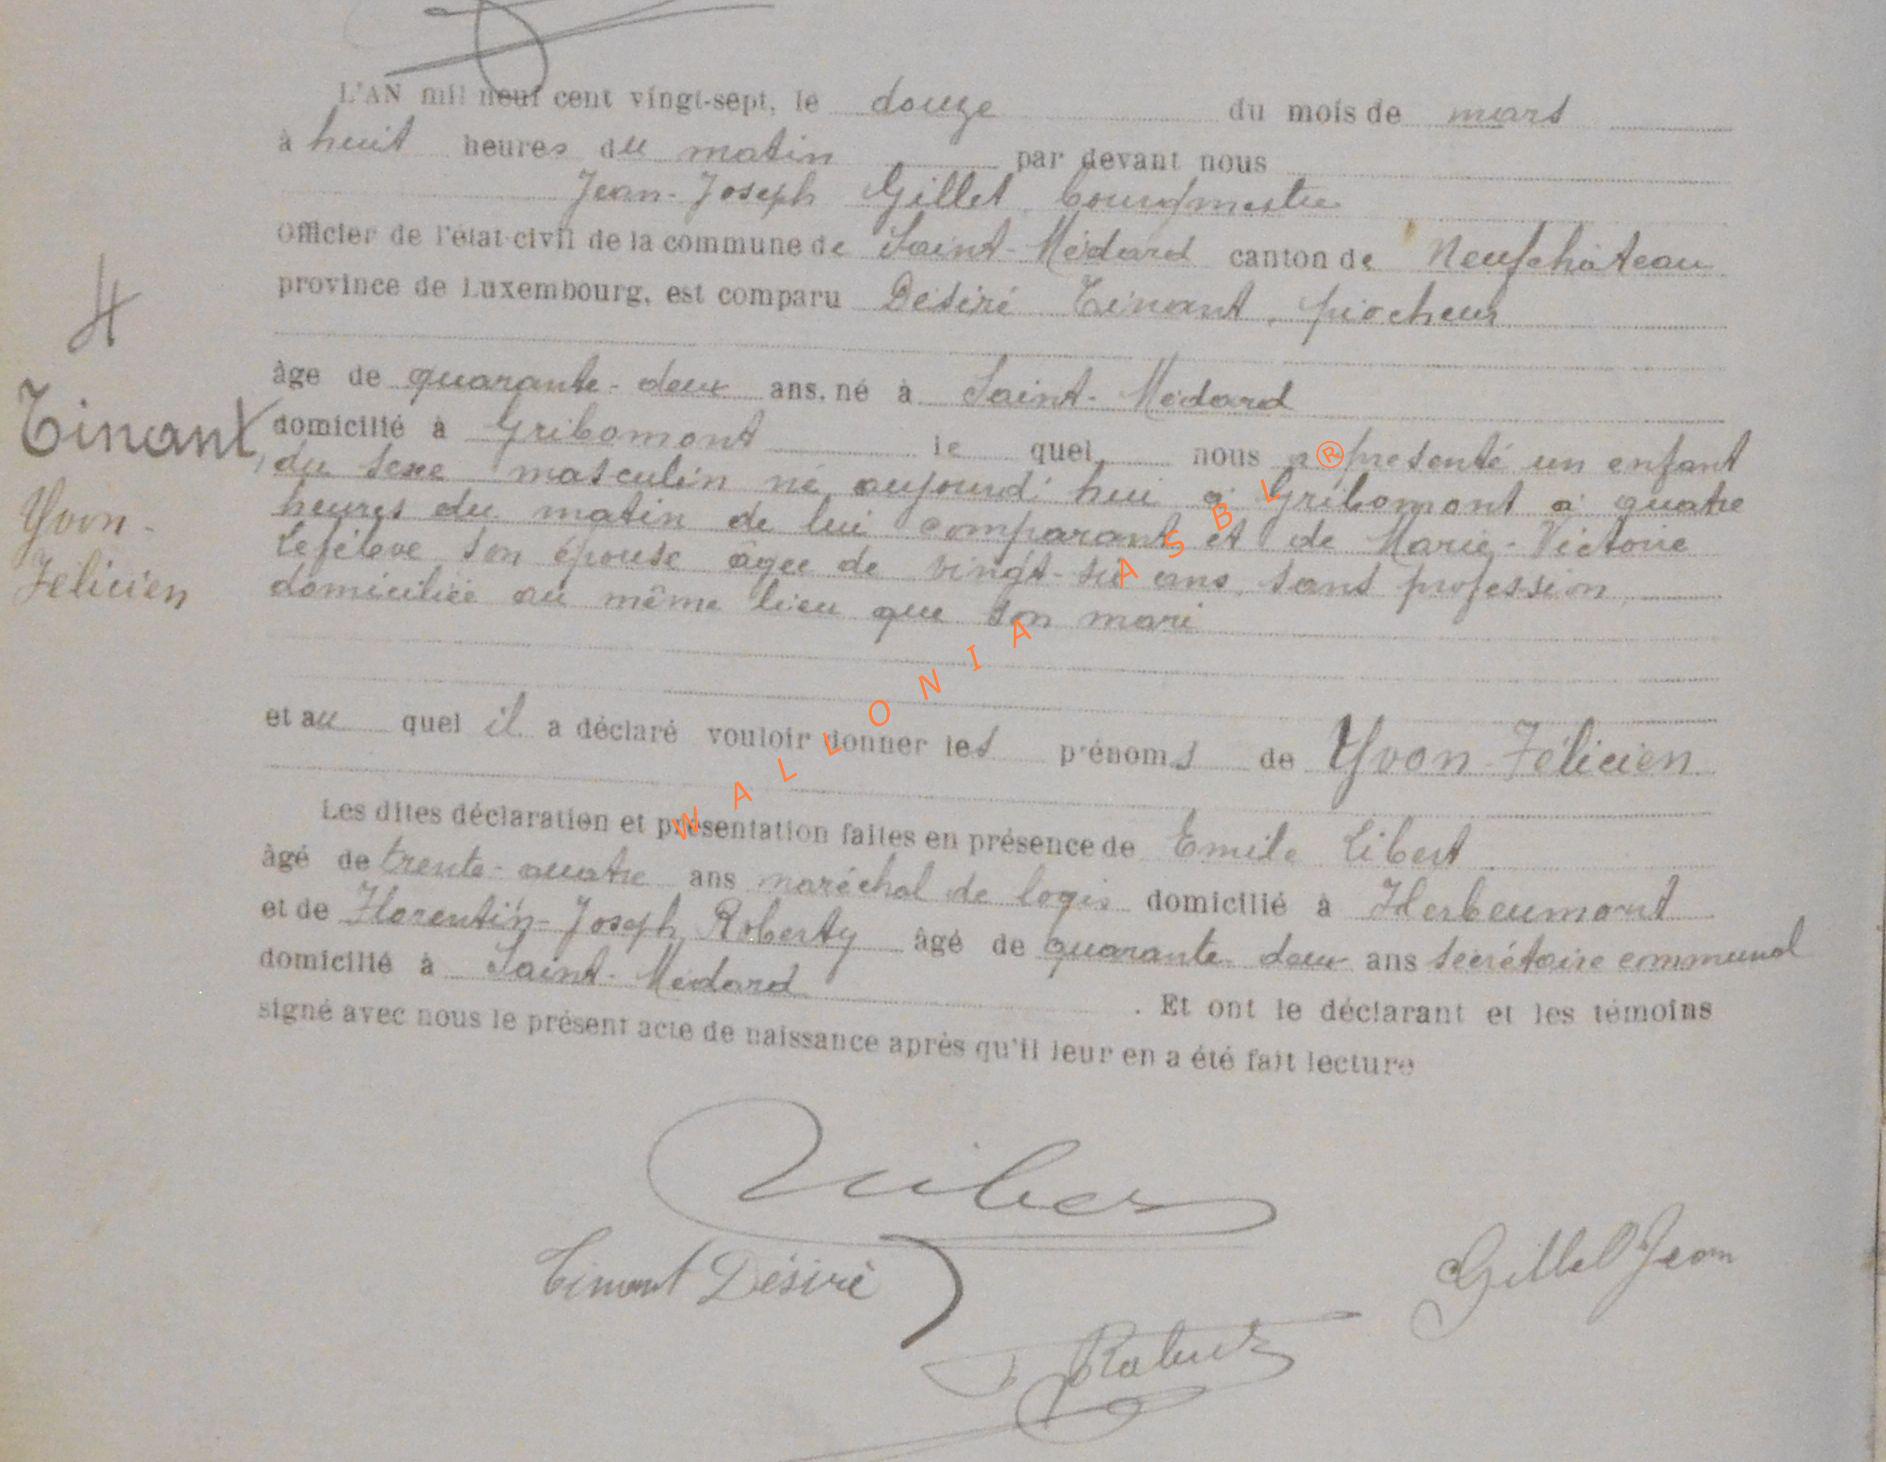 L'AN mil neuf cent vingt-sept, le douze du mois de mars
à huit heures du matin par devant nous
Jean-Joseph Gillet, bourgmestre
Officier de l'état-civil de la commune de Saint-Médard canton de Neufchâteau
province de Luxembourg, est comparu Désiré Tinant, piocheur
4
âgé de quarante-deux ans, né à Saint-Médard
Tinant,
domicilié à Gribomont le quel nous a présenté un enfant
du sexe masculin né aujourd'hui à Gribomont à quatre
Yvon-
heures du matin de lui comparant et de Marie-Victoire
Félicien
son épouse âgée de vingt-six ans, sans profession,
domiciliée au même lieu que son mari
et au quel il a déclaré vouloir donner les prénoms de Yvon-Félicien
Les dites déclaration et présentation faites en présence de Emile Libert
âgé de trente-quatre ans maréchal de logis domicilié à Herbeumont
et de Florentin-Joseph Roberty âgé de quarante-deux ans secrétaire communal
domicilié à Saint-Médard . Et ont le déclarant et les témoins
signé avec nous le présent acte de naissance après qu'il leur en a été fait lecture
Tinant Désiré
Gillet Jean
WALLONIA ASBL ®